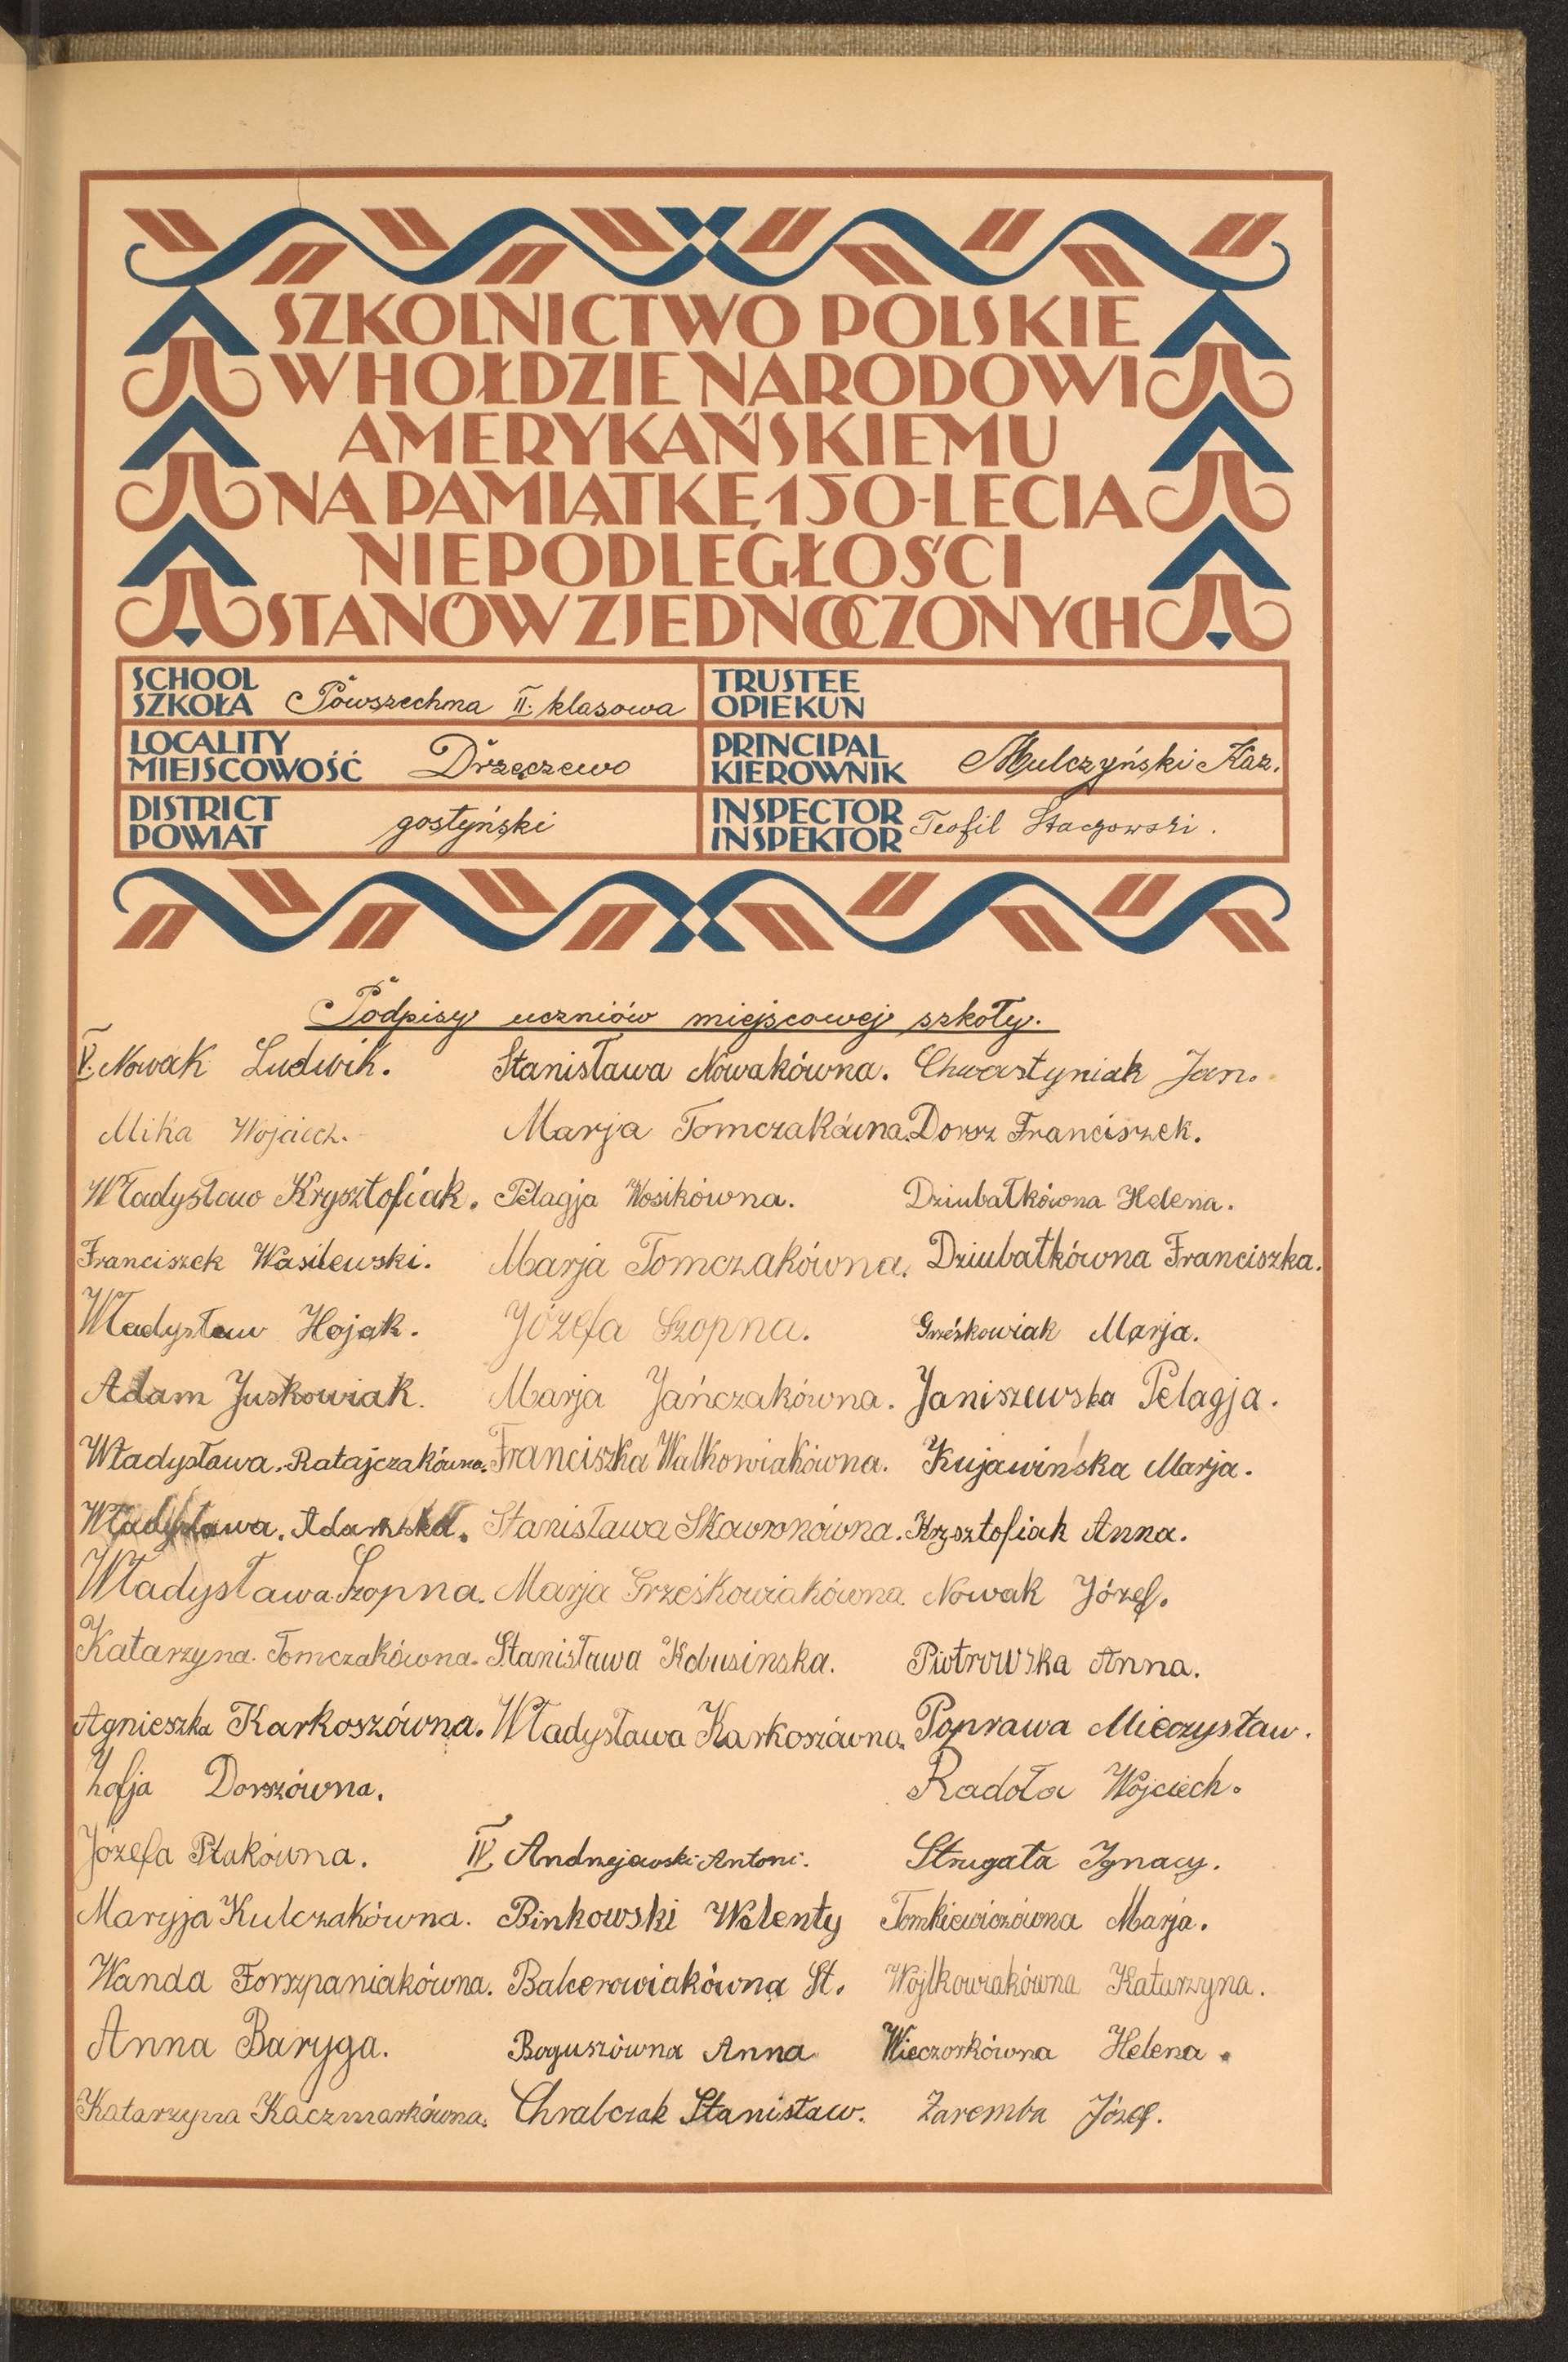 SZKOLNICTWO POLSKIE
W HOŁDZIE NARODOWI
AMERYKAŃSKIEMU
NA PAMIĄTKĘ 150-LECIA
NIEPODLEGŁOŚCI
STANÓW ZJEDNOCZONYCH
SCHOOL
SZKOŁA Powszechna II. klasowa
TRUSTEE
OPIEKUN
LOCALITY
MIEJSCOWOŚĆ Drzęczewo
PRINCIPAL
KIEROWNIK Mulczyński Kaz.
DISTRICT
POWIAT gostyński
INSPECTOR
INSPEKTOR Teofil Staczowski.
Podpisy uczniów miejscowej szkoły.
V. Nowak Ludwik.
Mika Wojciech.
Władysław Krysztofiak.
Franciszek Wasilewski.
Władysław Hojak.
Adam Juskowiak.
Władysława. Ratajczakówna.
Władysława. Adamska.
Władysława Szopna.
Katarzyna. Tomczakówna.
Agnieszka Karkoszówna.
Zofja Dorszówna.
Józefa Ptakówna.
Maryja Kulczakówna.
Wanda Forszpaniakówna.
Anna Baryga.
Katarzyna Kaczmarkówna.
Stanisława Nowakówna.
Marja Tomczakówna.
Pelagja Wosikówna.
Marja Tomczakówna.
Józefa Szopna.
Marja Jańczakówna.
Franciszka Walkowiakówna.
Stanisława Skawronówna.
Marja Grześkowiakówna.
Stanisława Kdusinska.
Władysława Karkoszówna.
IV. Andrzejewski Antoni.
Binkowski Walenty
Balcerowiakówna St.
Boguszówna Anna
Chrabczak Stanisław.
Chwastyniak Jan.
Dorsz Franciszek.
Dziubałkówna Helena.
Dziubałkówna Franciszka.
Grześkowiak Marja.
Janiszewska Pelagja.
Kujawińska Marja.
Krzsztofiak Anna.
Nowak Józef.
Piotrowska Anna.
Poprawa Mieczysław.
Radoła Wojciech.
Strugała Ignacy.
Tomkiewiczówna Marja.
Wojtkowiakówna Katarzyna.
Wieczorkówna Helena.
Zaremba Józef.